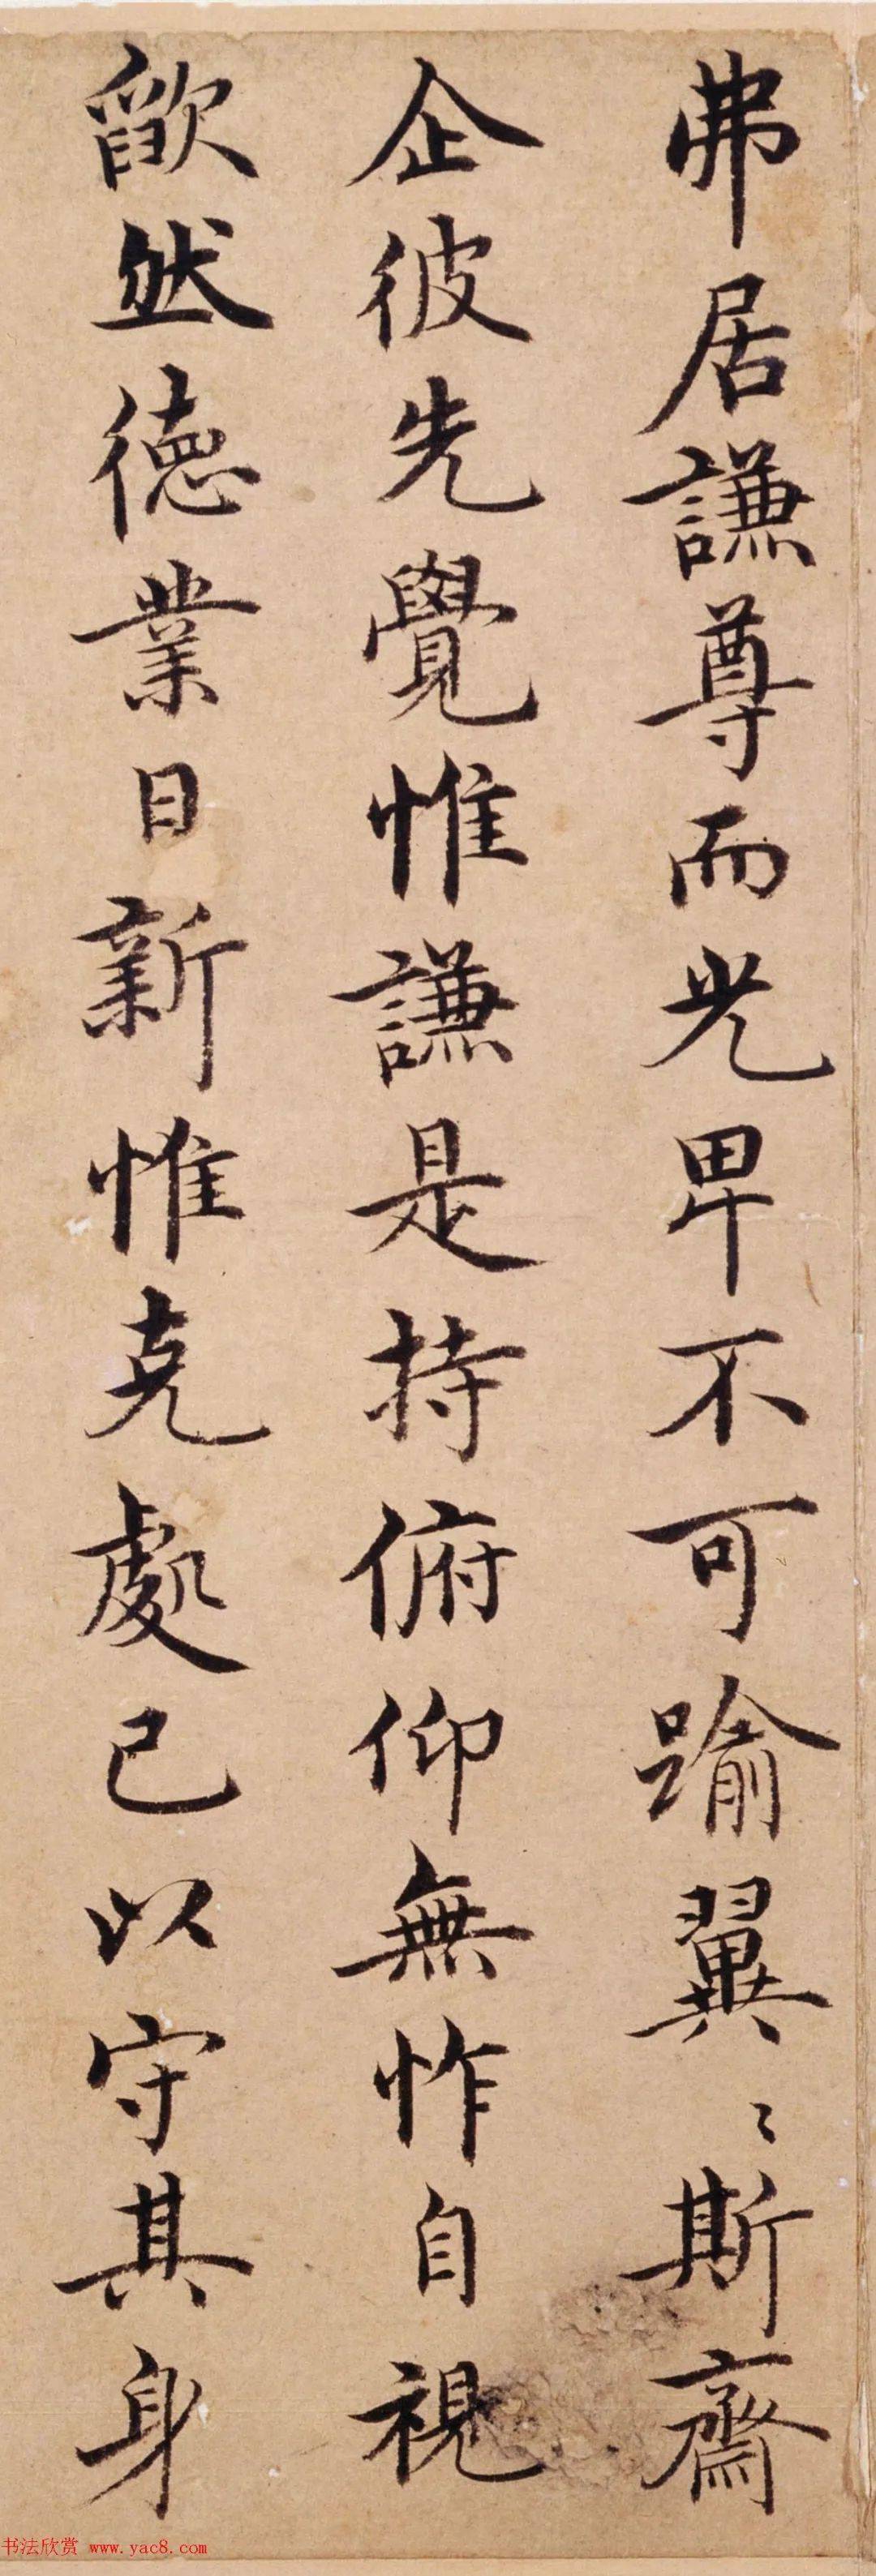 弗居謙尊而光卑不可踰翼〻斯齋
企彼先覺惟謙是持俯仰無怍自視
歆然德業日新惟克處已以守其身
书法欣赏 www.yac8.com